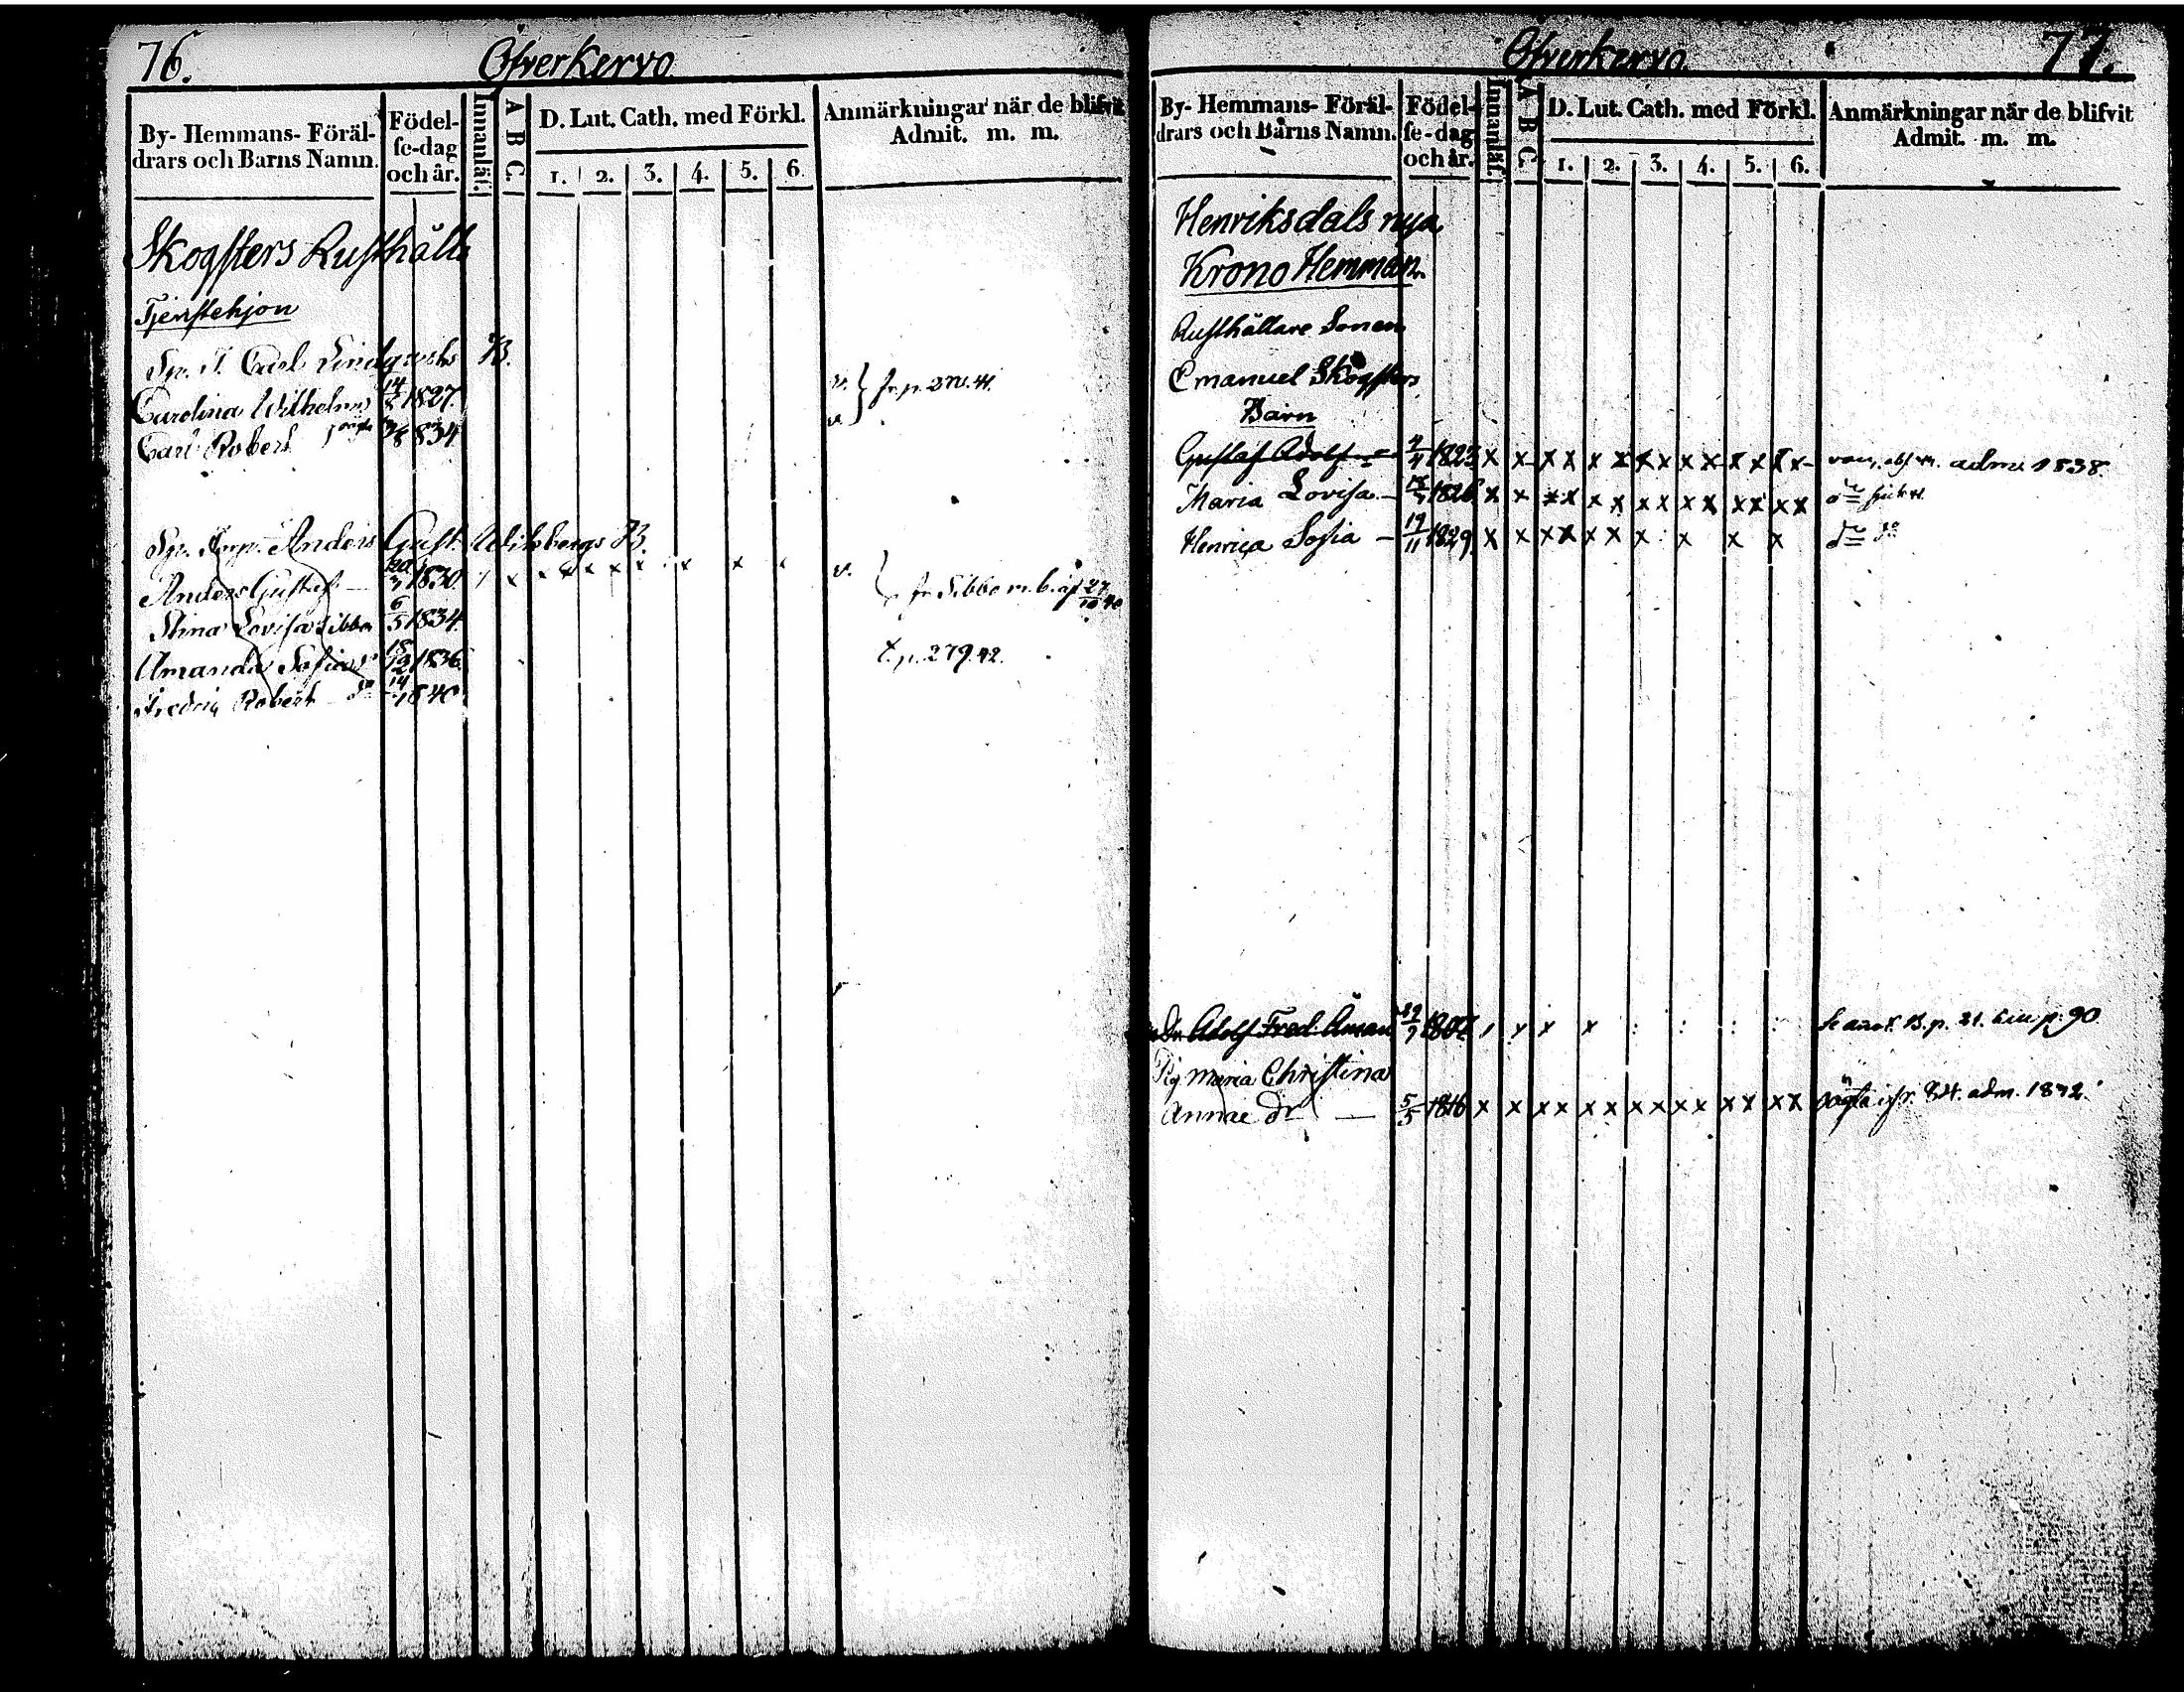 76.
Ofverkervo
By- Hemmans- Föräl-
drars och Barns Namn.
Födel-
se-dag
och år.
Innanläs.
A B C.
D. Lut. Cath. med Förkl.
1. 2. 3. 4. 5. 6.
Anmärkningar när de blifvit
Admit. m. m.
Skogsters Rusthålls
Tjenstehjon
Sp. J. Carl Lindqvists B.
Carolina Wilhelm. 14/8 1827. v.
Carl Robert 834
Anders Gust. Wikbergs B.
Anders Gustaf 1830. x x x x x x x x x v. fr. Sibbo m. b. af 27/10 40
Stina Lovisa Sibbo 6/5 1834
Amanda Sofia 18/12 1836 t. p. 279. 42.
Fredric Robert do 14 1840
77.
Ofverkervo.
By- Hemmans- Föräl-
drars och Barns Namn.
Födel-
se-dag
och år.
Innanläs.
A B C.
D. Lut. Cath. med Förkl.
1. 2. 3. 4. 5. 6.
Anmärkningar när de blifvit
Admit. m. m.
Henriksdals nya
Krono Hemman.
Rusthållare Sonen
Emanuel Skogsters
Barn
Gustaf Adolf 4/4 1823 x x x x x x x x x x x x x x adm. 1838.
Maria Lovisa 1826 x x x x x x x x x x x x x x
Henrica Sofia — 19/11 1829 x x x x x x x x x x do
Dr. Adolf Fred. Åman 29/9 1807 x x x p. 21. p. 90
Pig. Maria Christina
Annae dr — 5/5 1816 x x x x x x x x x x x x x x adm. 1832.